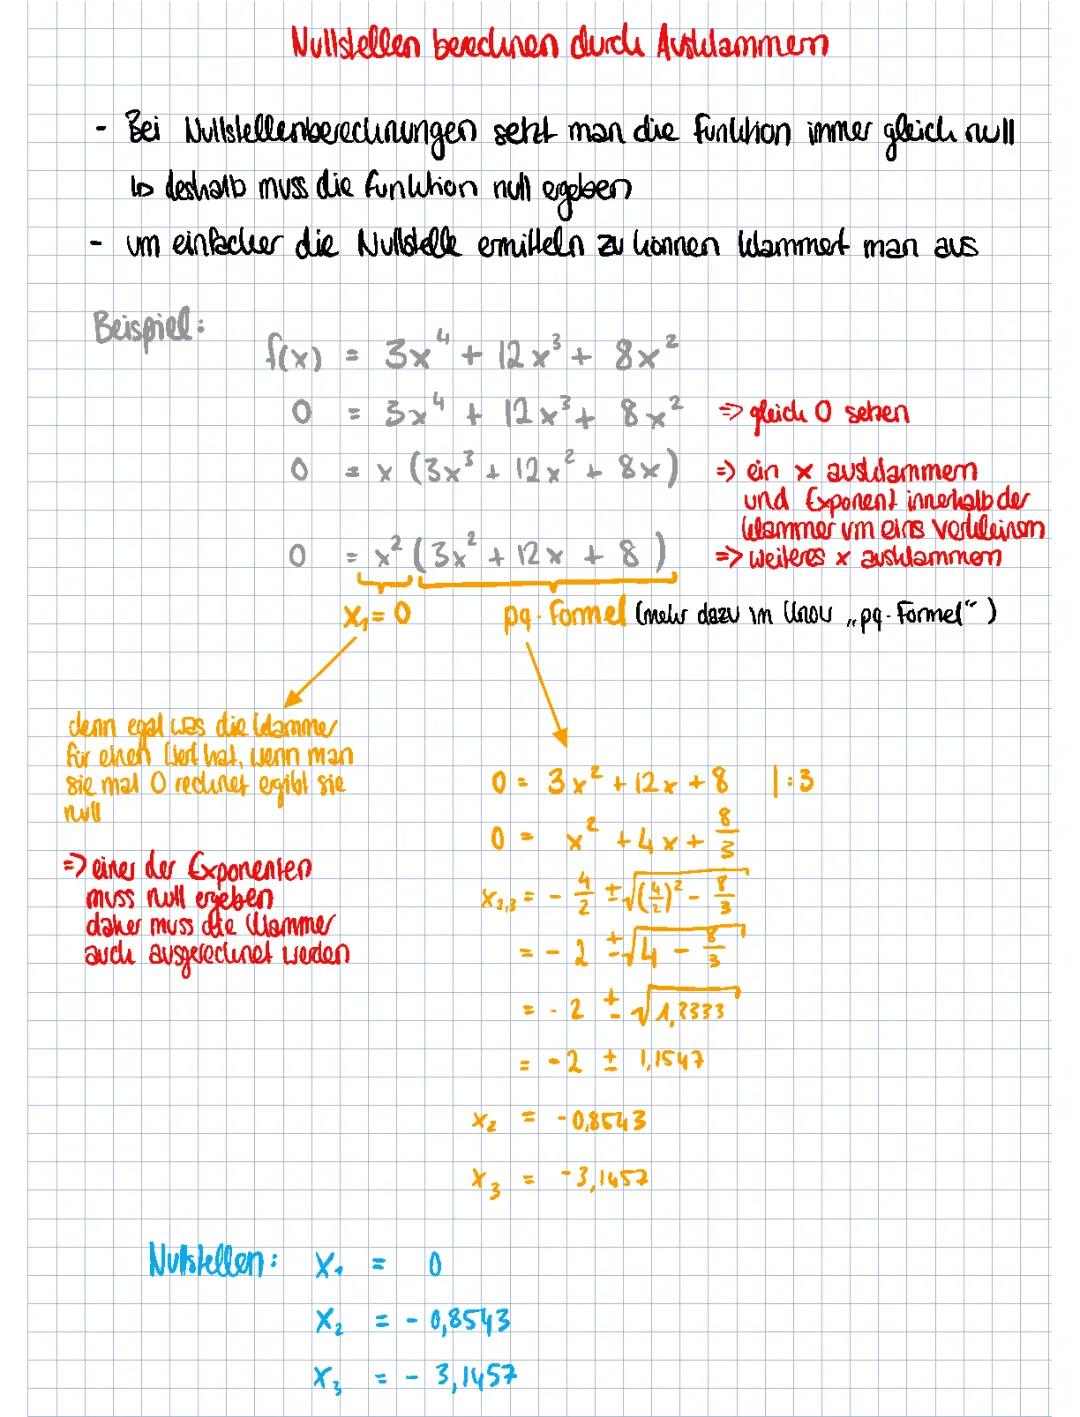 Nullstellen berechnen durch Ausklammern
- Bei Nullstellenberechnungen setzt man die Funktion immer gleich null
↳ deshalb muss die Funktion null ergeben
- um einfacher die Nullstelle ermitteln zu können klammert man aus
Beispiel:
f(x) = 3x⁴ + 12x³ + 8x²
0 = 3x⁴ + 12x³ + 8x² => gleich 0 setzen
0 = x (3x³ + 12x² + 8x) => ein x ausklammern
und Exponent innerhalb der
Klammer um eins verkleinern
0 = x² (3x² + 12x + 8) => weiteres x ausklammern
x₁ = 0 pq-Formel (mehr dazu im Know „pq-Formel“)
denn egal was die Klammer
für einen Wert hat, wenn man
sie mal 0 rechnet ergibt sie
null
=> einer der Exponenten
muss null ergeben
daher muss die Klammer
auch ausgerechnet werden
0 = 3x² + 12x + 8 |:3
0 = x² + 4x + 8/3
x₂,₃ = - 4/2 ± √((4/2)² - 8/3)
= - 2 ± √(4 - 8/3)
= - 2 ± √1,3333
= -2 ± 1,1547
x₂ = -0,8543
x₃ = -3,1457
Nullstellen: x₁ = 0
x₂ = - 0,8543
x₃ = - 3,1457